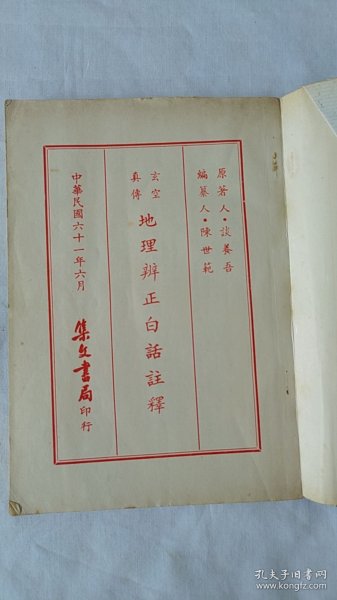 原著人·談養吾
編纂人·陳世範
玄空
真傳
地理辨正白話註釋
中華民國六十一年六月
集文書局印行
孔夫子旧书网